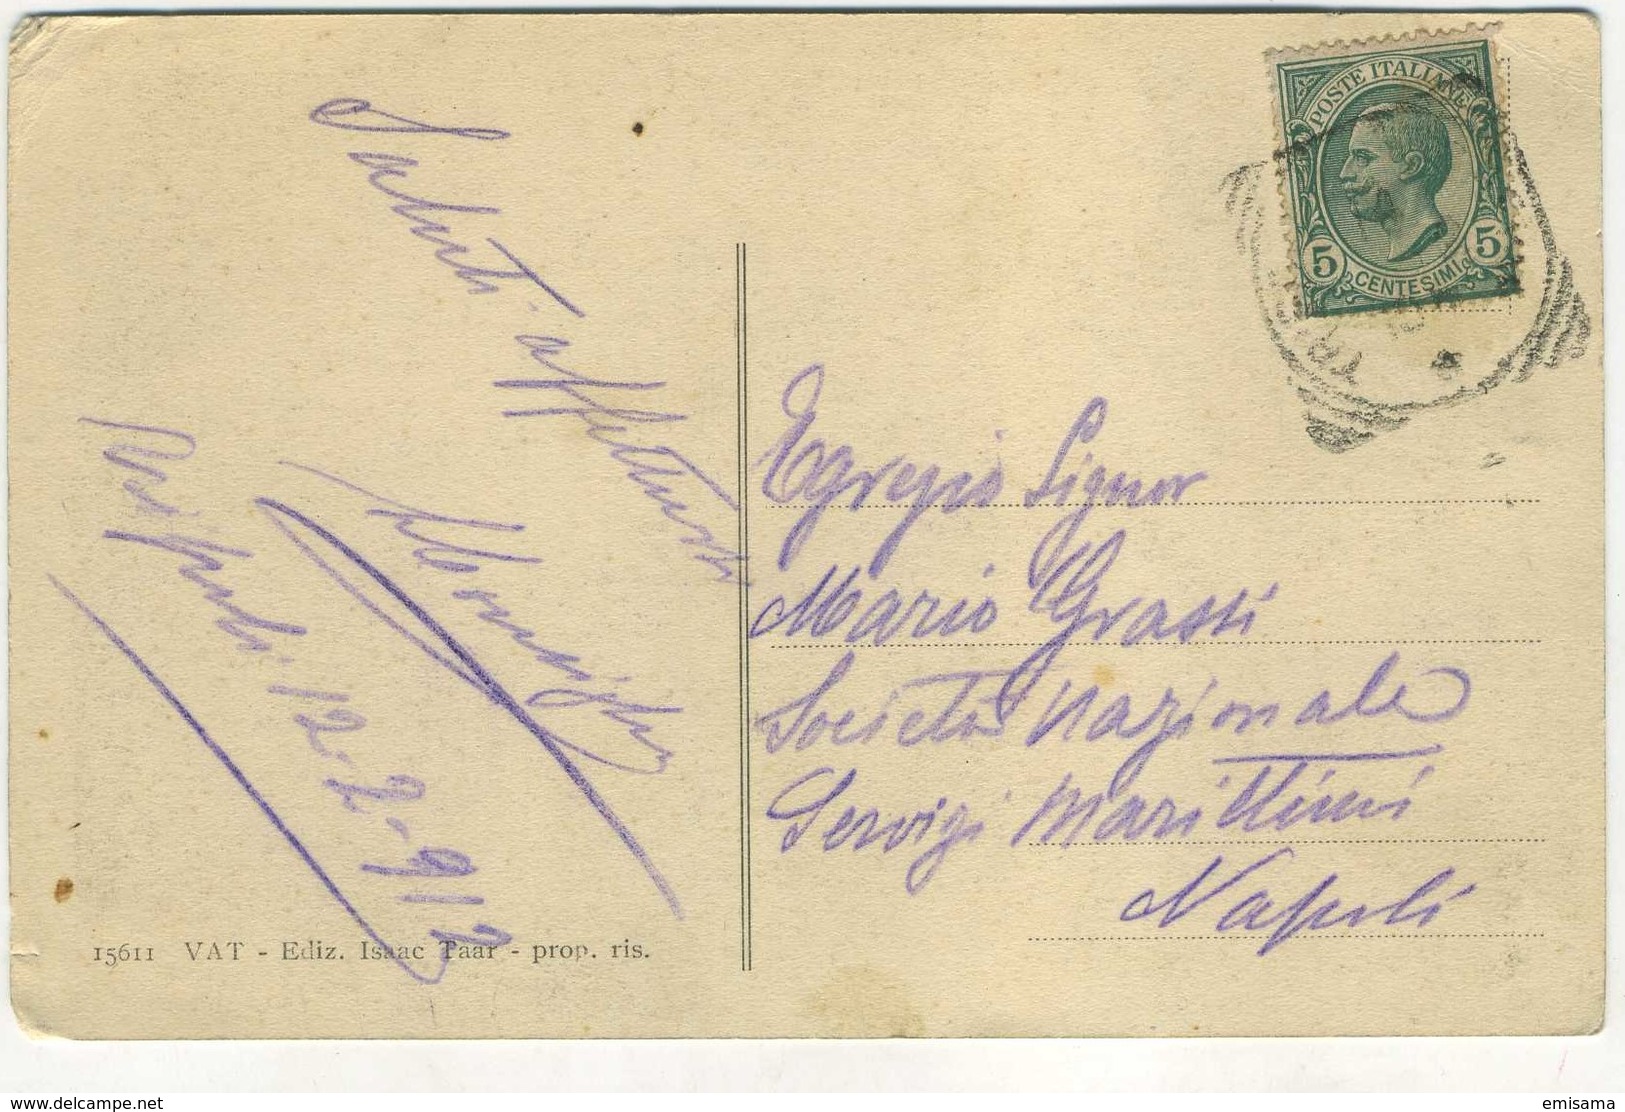 Saluti affettuosi
12-2-912
15611 VAT - Ediz. Isaac Taar - prop. ris.
POSTE ITALIANE
5 5
CENTESIMI
Egregio Signor
Mario Grassi
Società Nazionale
Servigi Marittimi
Napoli
www.delcampe.net
emisama